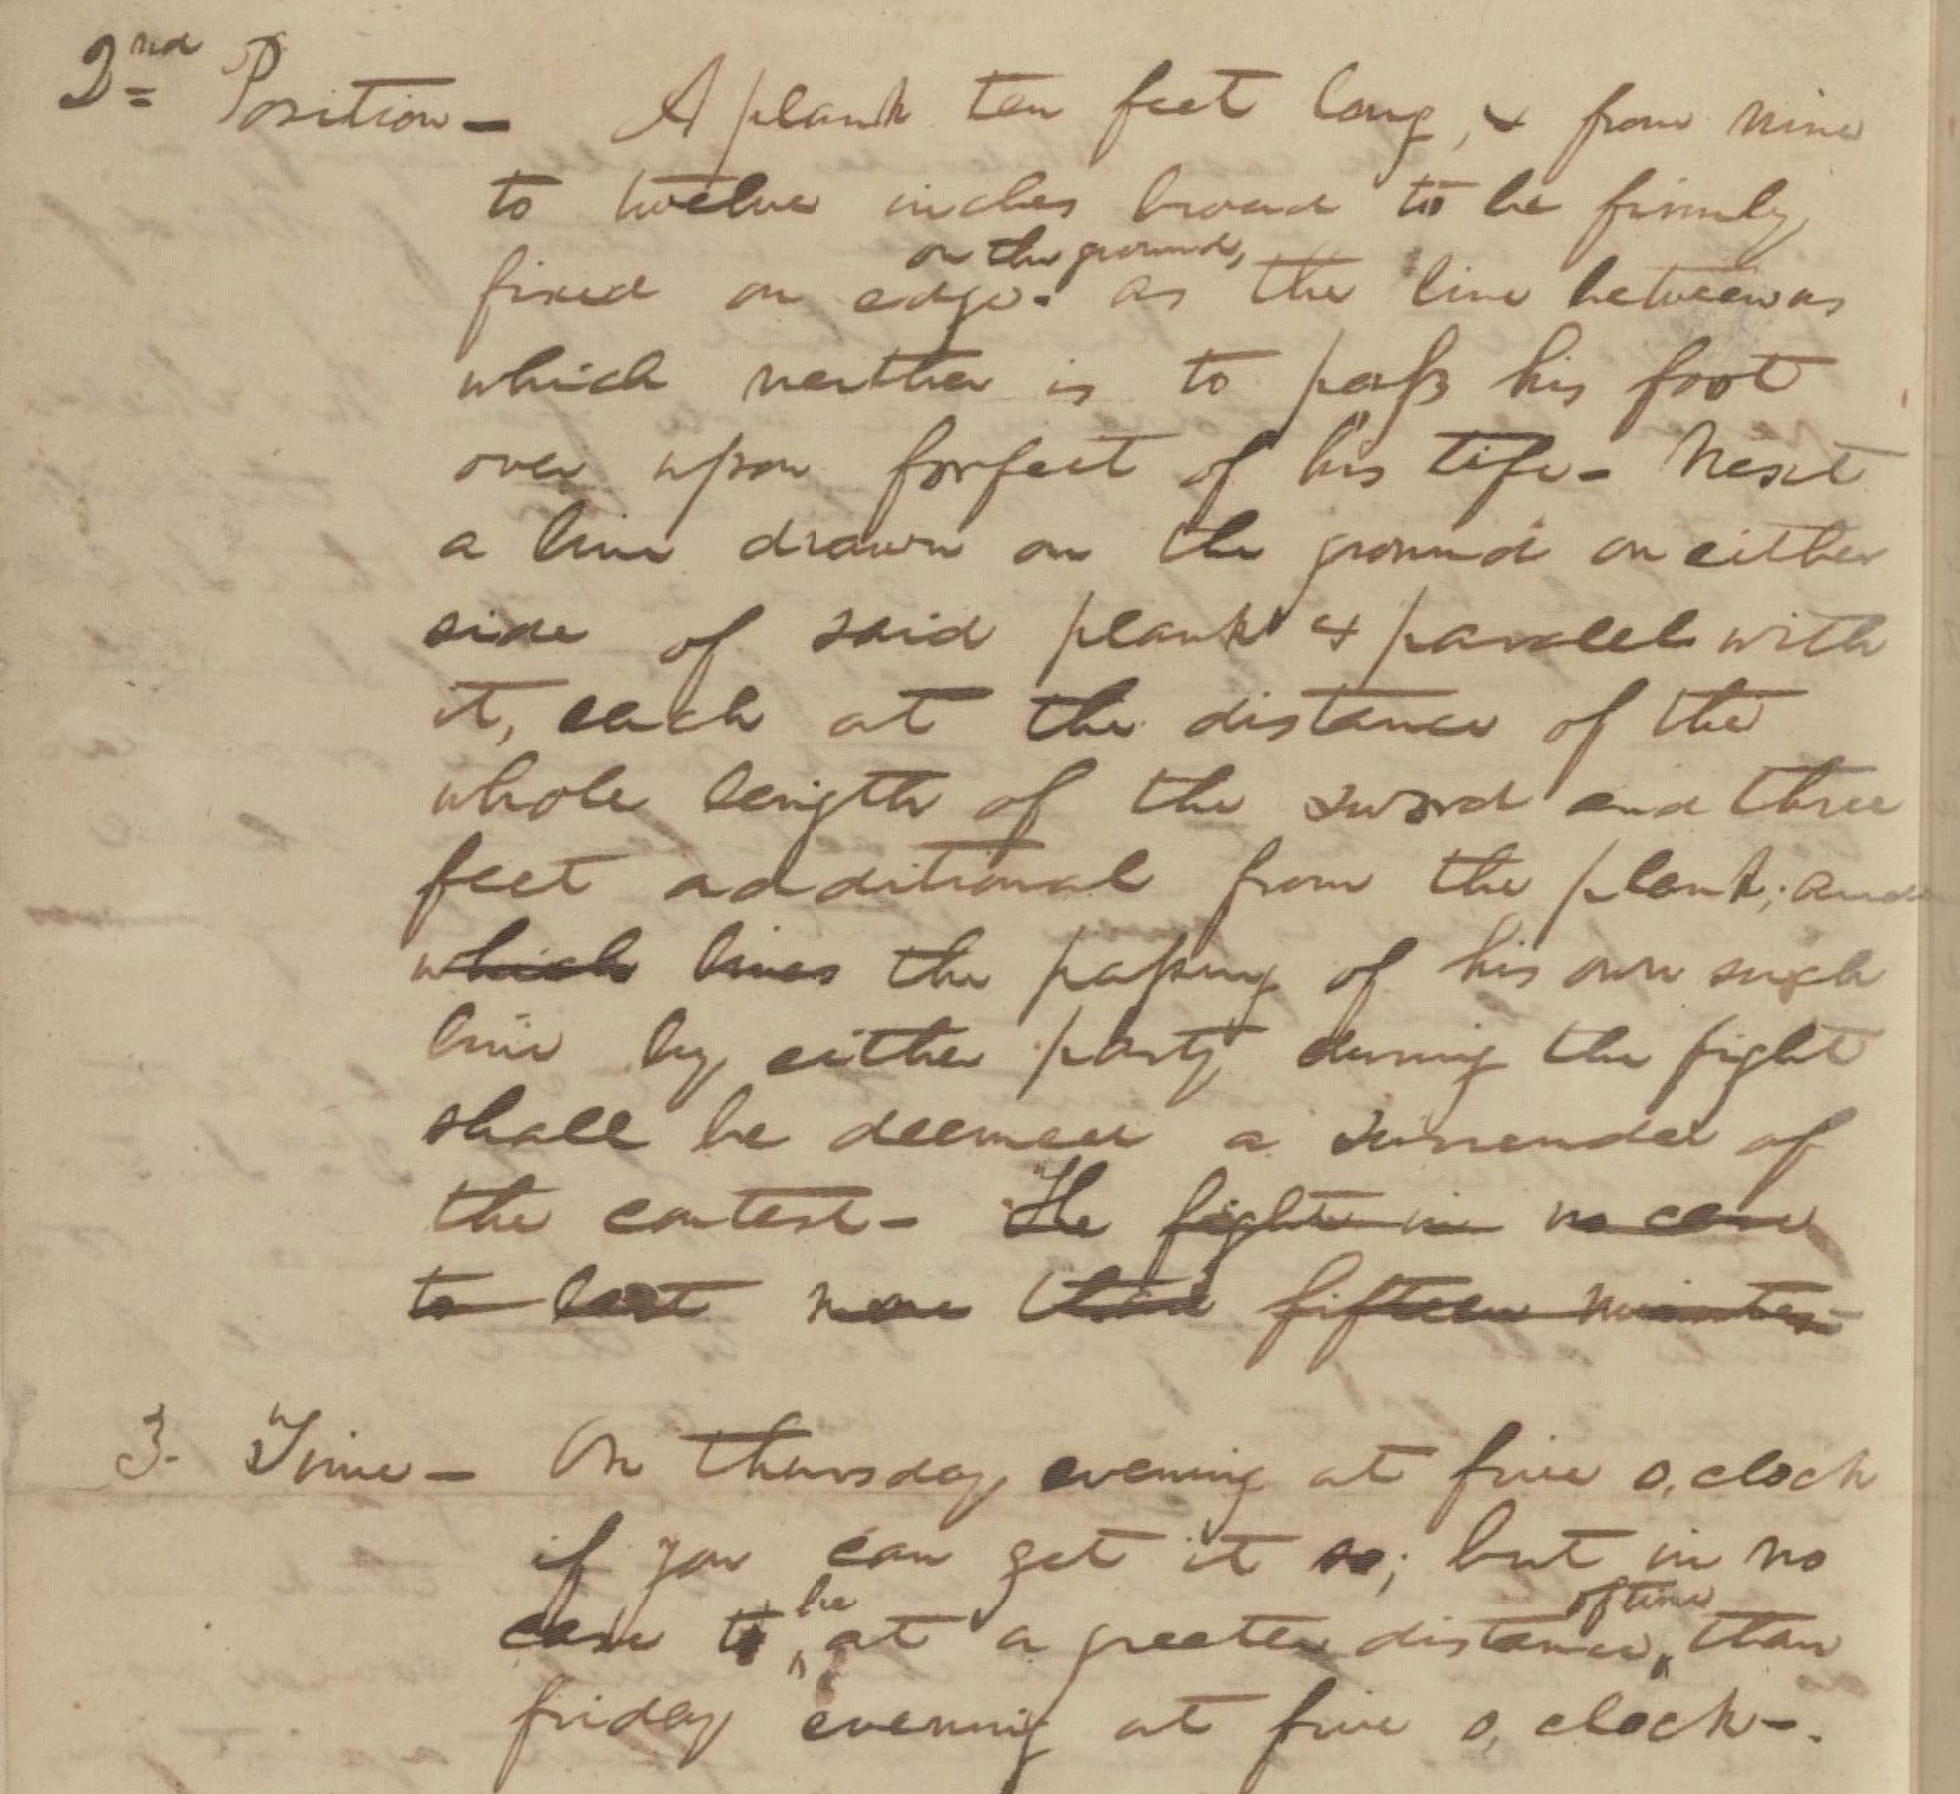 2nd Position – A plank ten feet long, & from nine
to twelve inches broad to be firmly
on the ground,
fixed on edge. as the line between us
which neither is to pass his foot
over upon forfeit of his life – Next
a line drawn on the ground on either
side of said plank & parallel with
it, each at the distance of the
whole length of the sword and three
feet additional from the plank; and
which lines the passing of his own such
line by either party during the fight
shall be deemed a surrender of
the contest – The fight in no case
to last more than fifteen minutes
3. Time – On thursday evening at five o,clock
if you can get it so; but in no
be of time
case to at a greater distance than
friday evening at five o,clock –.